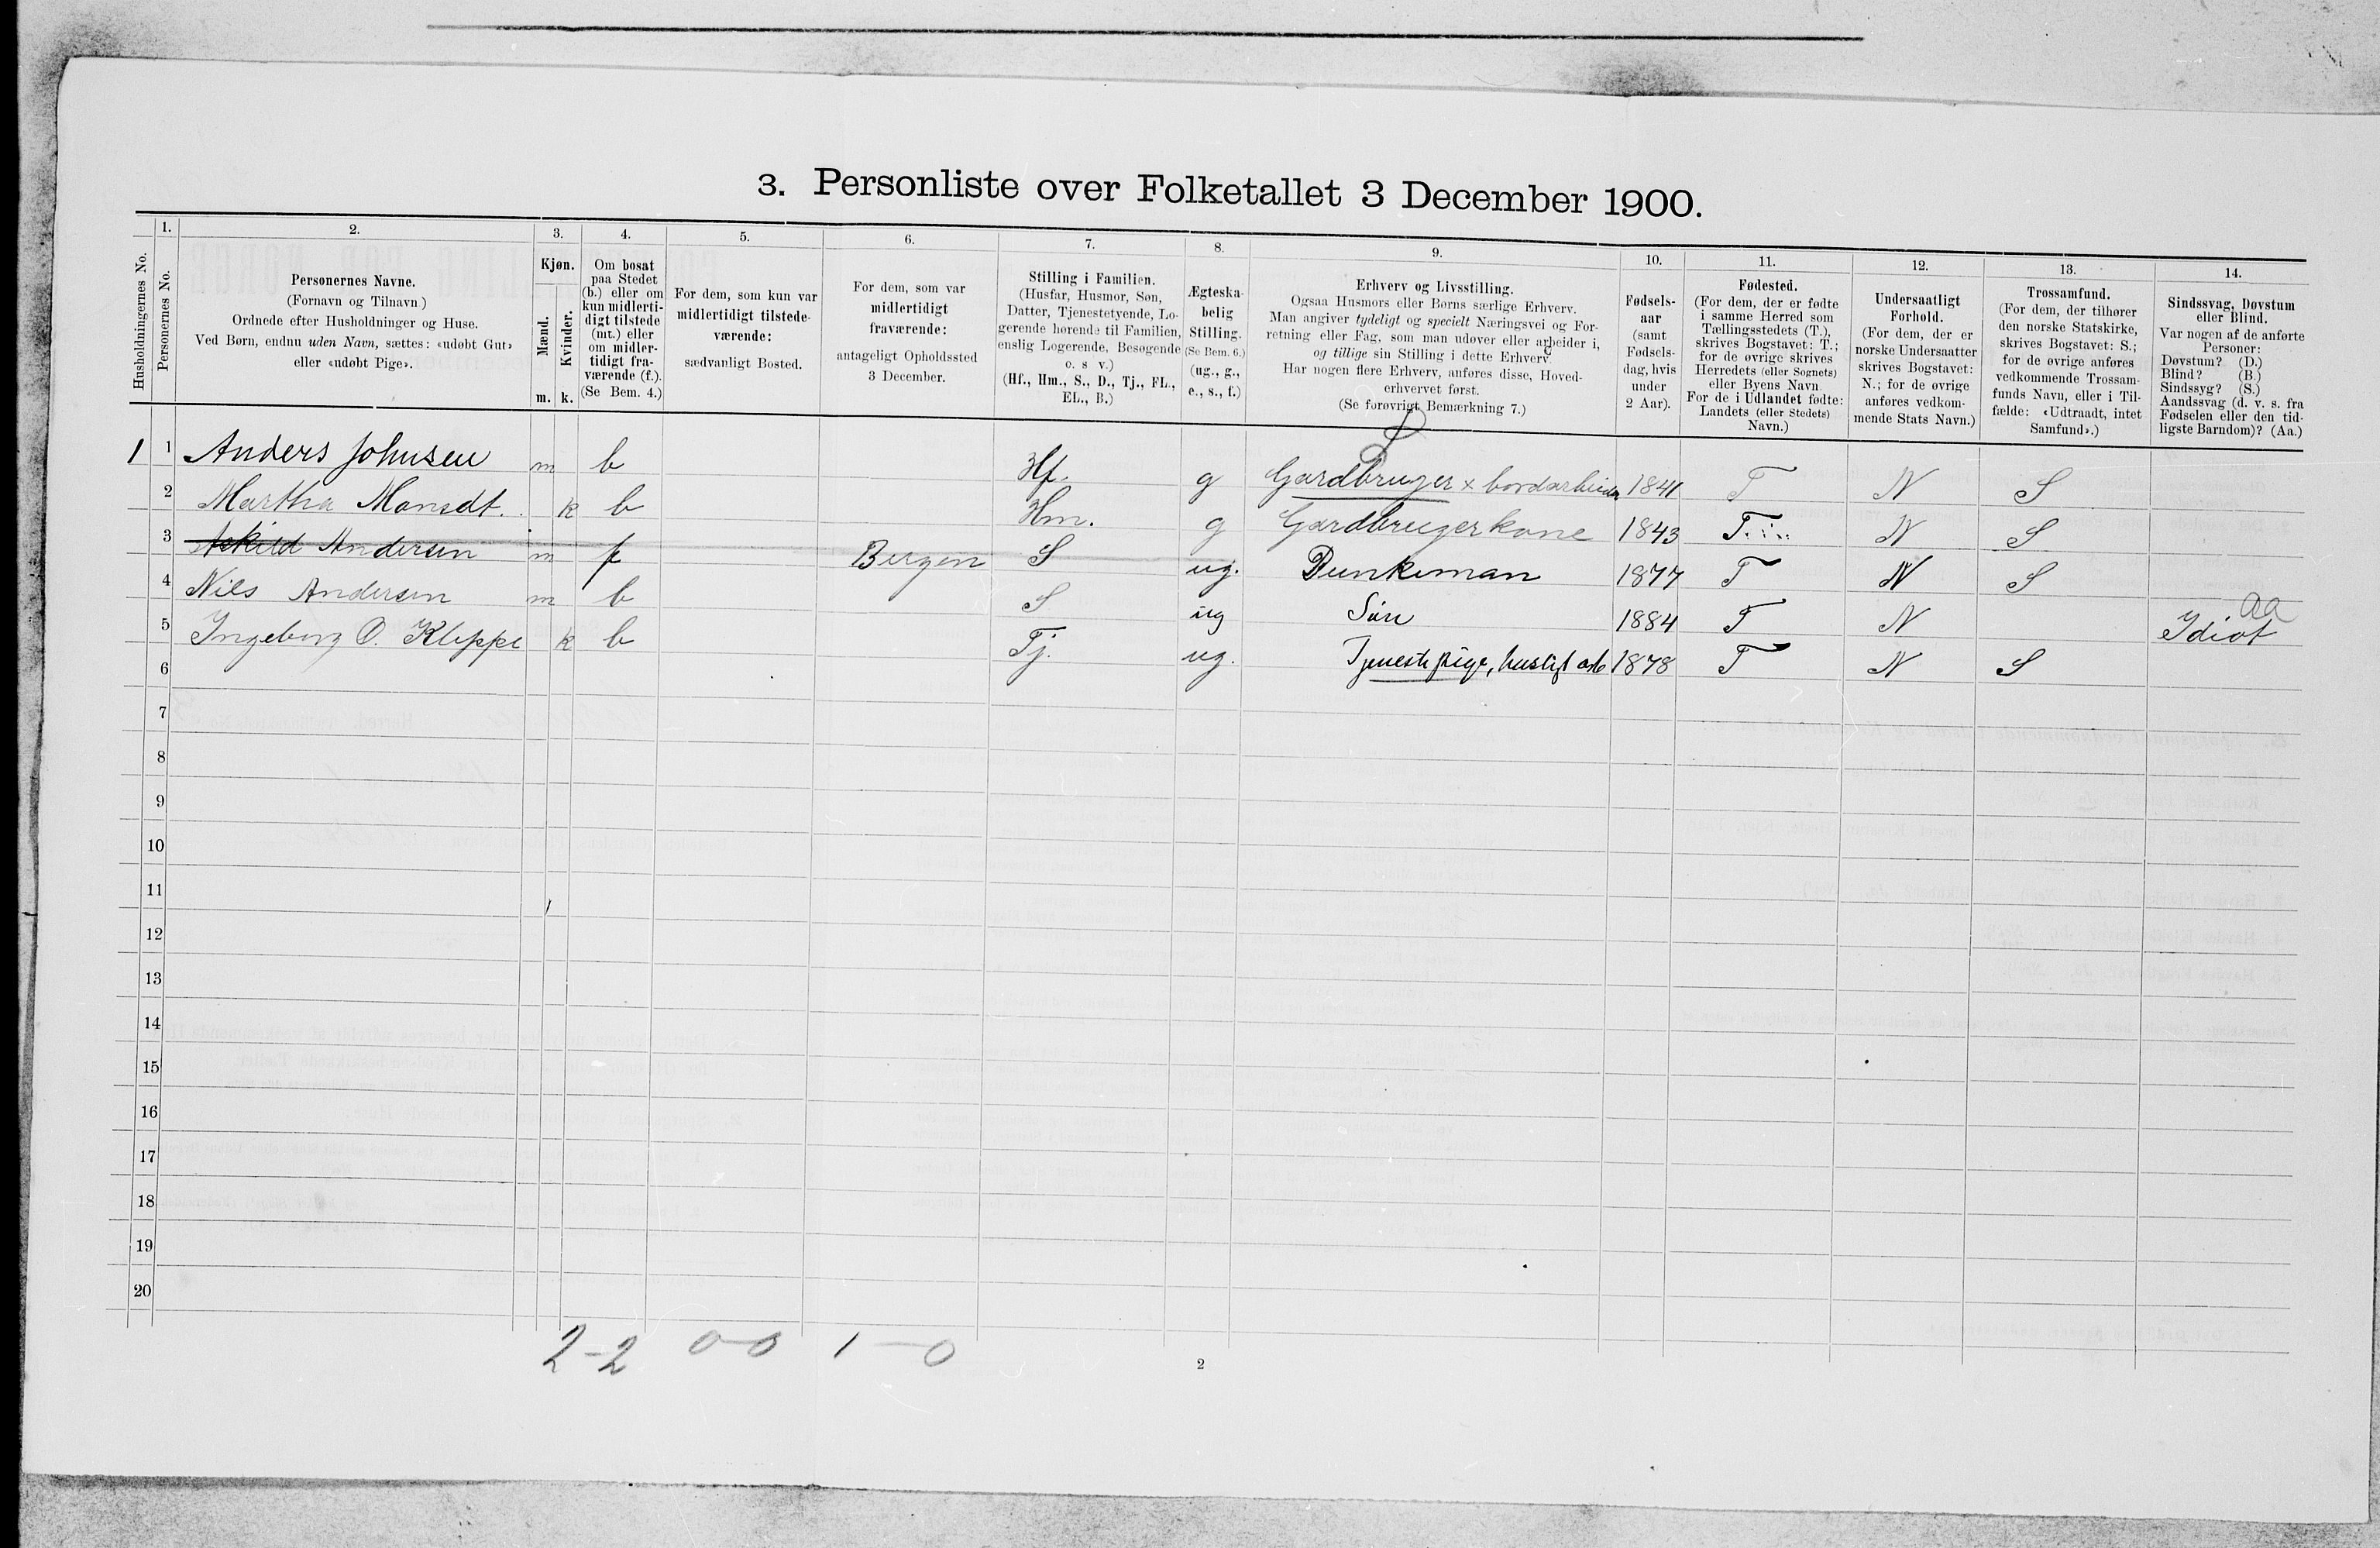 3. Personliste over Folketallet 3 December 1900.
Husholdningernes No.
1.
Personernes No.
2.
Personernes Navne.
(Fornavn og Tilnavn)
Ordnede efter Husholdninger og Huse.
Ved Børn, endnu uden Navn, sættes: «udøbt Gut»
eller «udøbt Pige».
3.
Kjøn.
Mænd.
Kvinder.
m. k.
4.
Om bosat
paa Stedet
(b.) eller om
kun midlerti-
digt tilstede
(mt.) eller
om midler-
tidigt fra-
værende (f.).
(Se Bem. 4.)
5.
For dem, som kun var
midlertidigt tilstede-
værende:
sædvanligt Bosted.
6.
For dem, som var
midlertidigt
fraværende:
antageligt Opholdssted
3 December.
7.
Stilling i Familien.
(Husfar, Husmor, Søn,
Datter, Tjenestetyende, Lo-
gerende hørende til Familien,
enslig Logerende, Besøgende
o. s v.)
(Hf., Hm., S., D., Tj., FL.,
EL., B.)
8.
Ægteska-
belig
Stilling.
(Se Bem. 6.)
(ug., g.,
e., s., f.)
9.
Erhverv og Livsstilling.
Ogsaa Husmors eller Børns særlige Erhverv.
Man angiver tydeligt og specielt Næringsvei og For-
retning eller Fag, som man udøver eller arbeider i,
og tillige sin Stilling i dette Erhverv.
Har nogen flere Erhverv, anføres disse, Hoved-
erhvervet først.
(Se forøvrigt Bemærkning 7.)
10.
Fødsels-
aar
(samt
Fødsels-
dag, hvis
under
2 Aar).
11.
Fødested.
(For dem, der er fødte
i samme Herred som
Tællingsstedets (T.),
skrives Bogstavet: T.;
for de øvrige skrives
Herredets (eller Sognets)
eller Byens Navn.
For de i Udlandet fødte:
Landets (eller Stedets)
Navn.)
12.
Undersaatligt
Forhold.
(For dem, der er
norske Undersaatter
skrives Bogstavet:
N.; for de øvrige
anføres vedkom-
mende Stats Navn.)
13.
Trossamfund.
(For dem, der tilhører
den norske Statskirke,
skrives Bogstavet: S.;
for de øvrige anføres
vedkommende Trossam-
funds Navn, eller i Til-
fælde: «Udtraadt, intet
Samfund».)
14.
Sindssvag, Døvstum
eller Blind.
Var nogen af de anførte
Personer:
Døvstum? (D.)
Blind? (B.)
Sindssyg? (S.)
Aandssvag (d. v. s. fra
Fødselen eller den tid-
ligste Barndom)? (Aa.)
1 1 Anders Johnsen m b Hf. g Gardbruger x bordarbeider 1841 T N S
2 Martha Monsdt. k b Hm. g Gardbrugerkone 1843 T. N S
3 Askild Andersen m f Bergen S ug. Dunkeman 1877 T N S
4 Nils Andersen m b S ug Søn 1884 T N Idiot Aa
5 Ingeborg O. Kleppe k b Tj. ug. Tjenestepige, husligt arb 1878 T N S
6
7
8
9
10
11
12
13
14
15
16
17
18
19
20
2-2 0-0 1-0
2